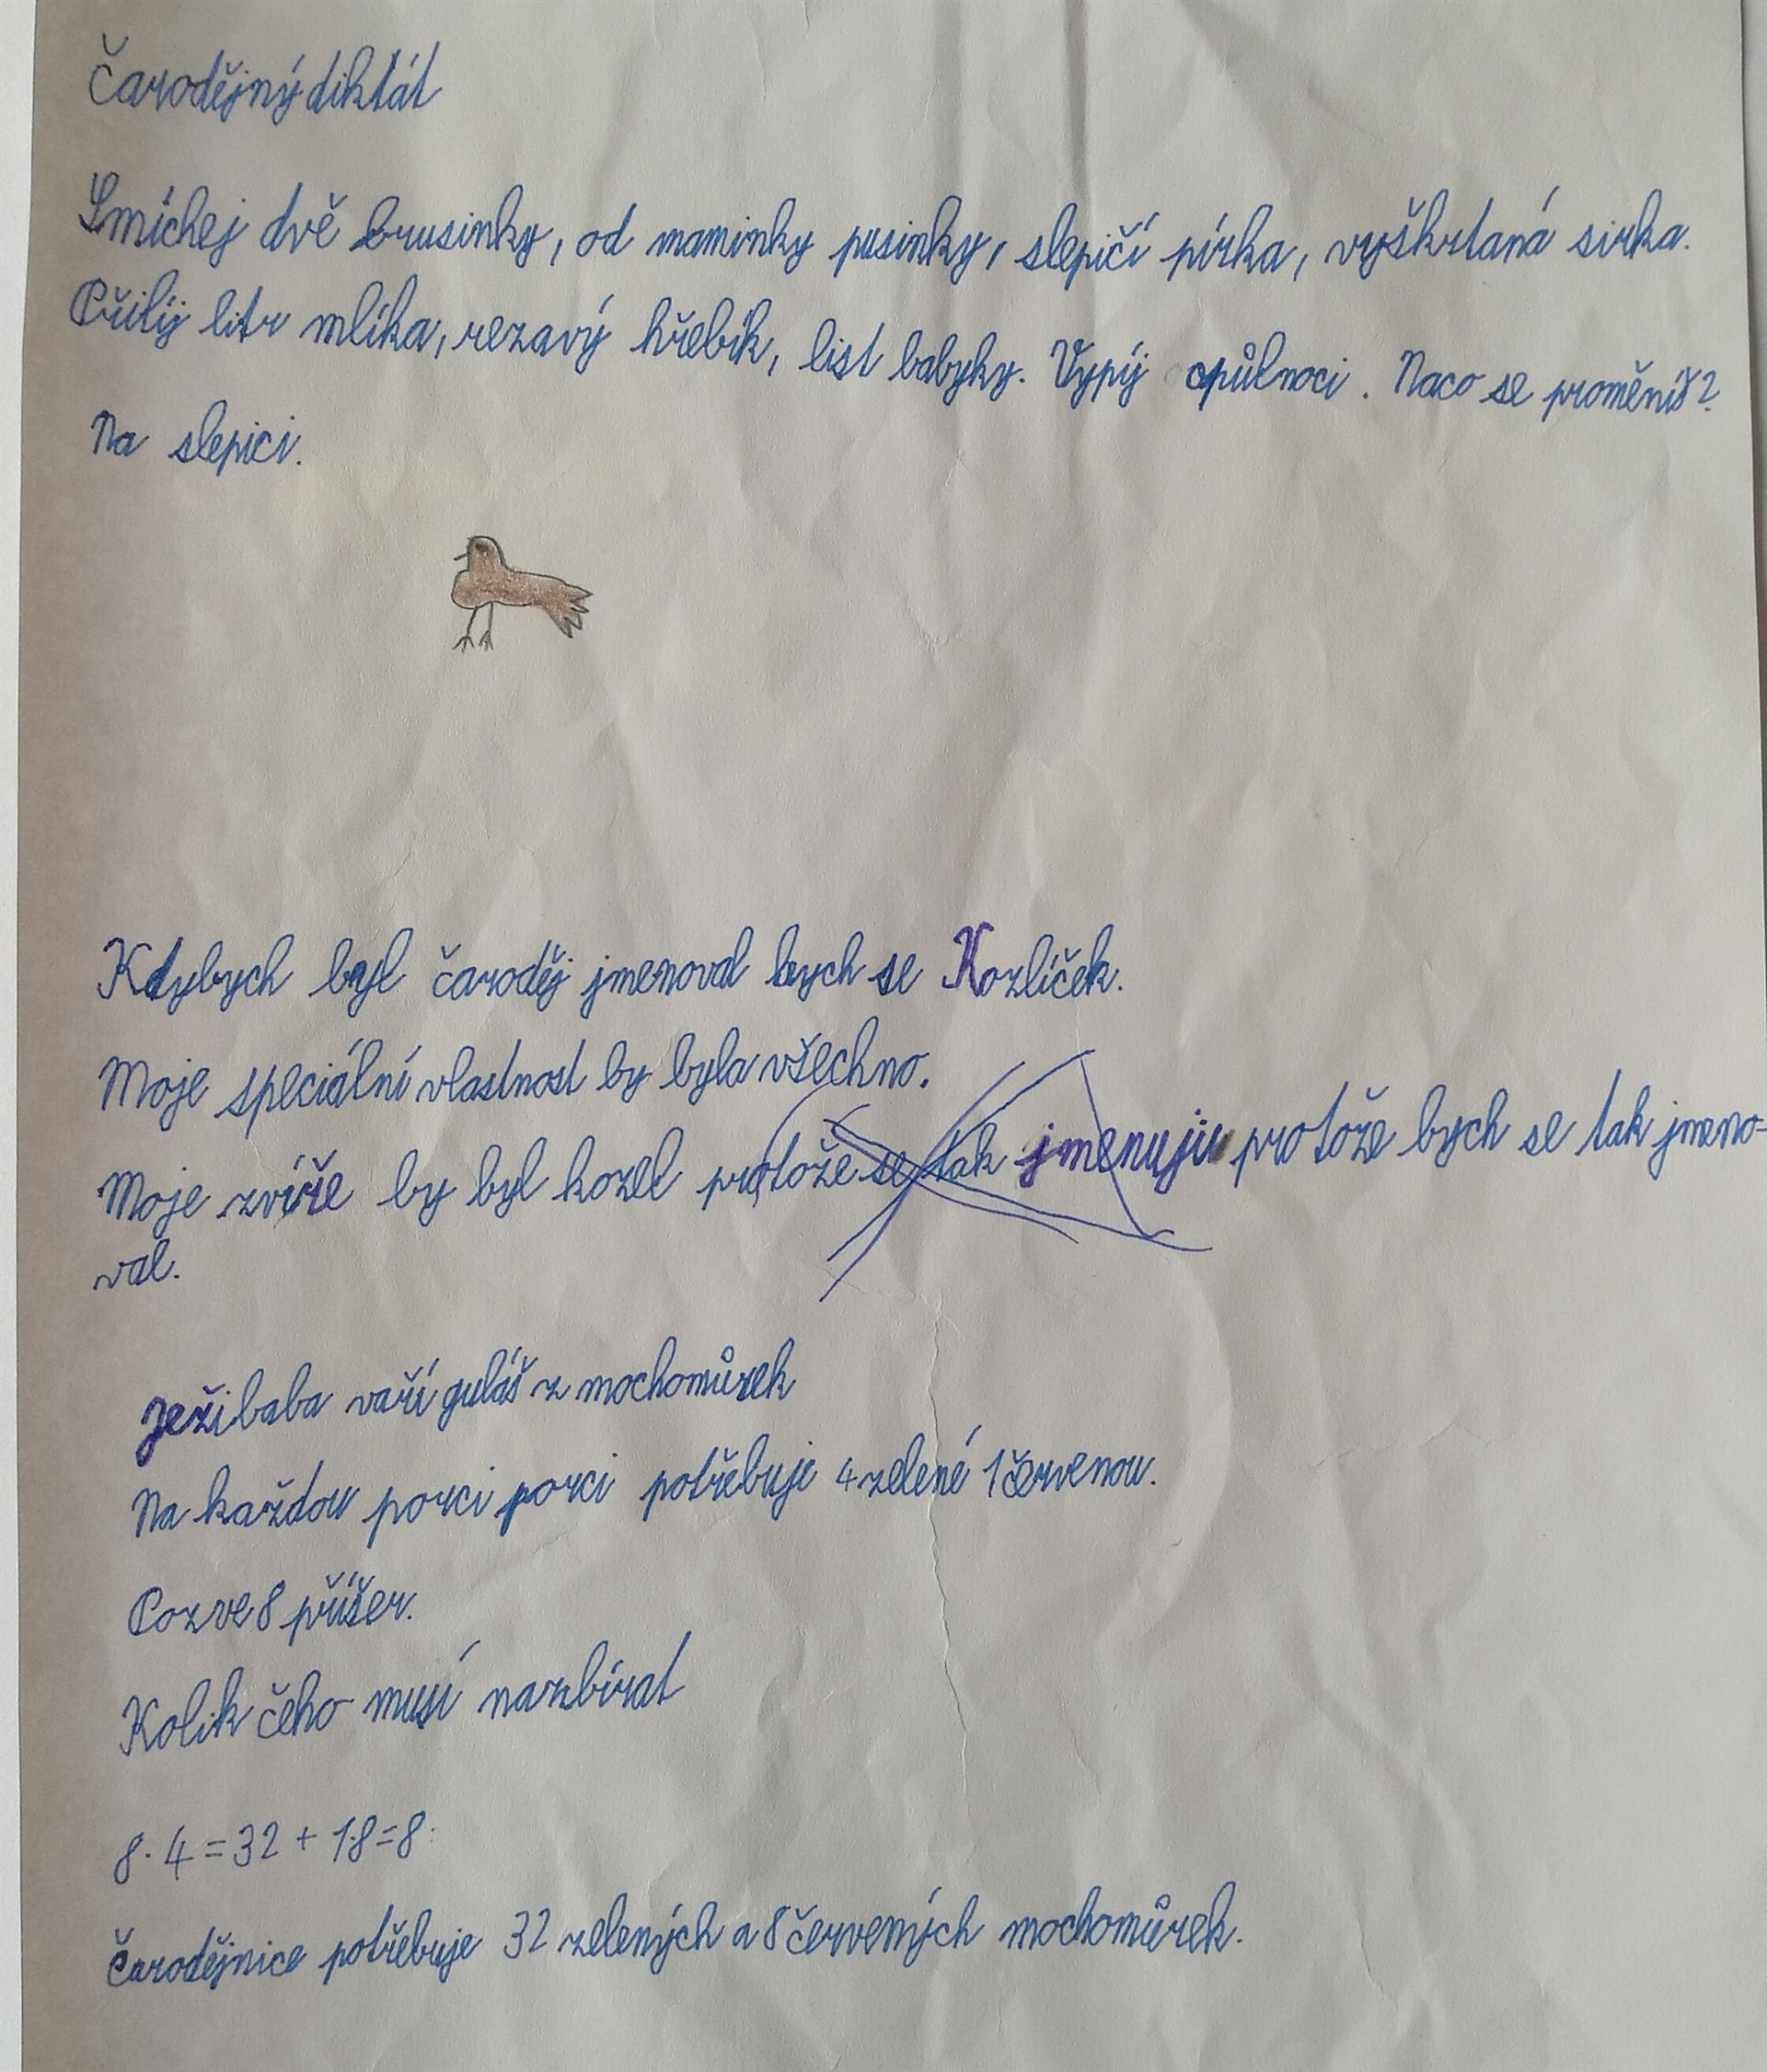 Čarodějný diktát
Smíchej dvě brusinky, od maminky pusinky, slepičí pírka, vyškrtaná sirka.
Přilij litr mlíka, rezavý hřebík, list babyky. Vypij opůlnoci. Naco se proměníš?
Na slepici.
Kdybych byl čaroděj jmenoval bych se Kozlíček.
Moje speciální vlastnost by byla všechno.
Moje zvíře by byl kozel protože se tak jmenuju protože bych se tak jmeno-
val.
Ježibaba vaří guláš z mochomůrek
Na každou porci porci potřebuje 4 zelené 1 červenou.
Pozve 8 příšer.
Kolik čeho musí nazbírat
8·4=32 + 1·8=8
čarodějnice potřebuje 32 zelených a 8 červených mochomůrek.